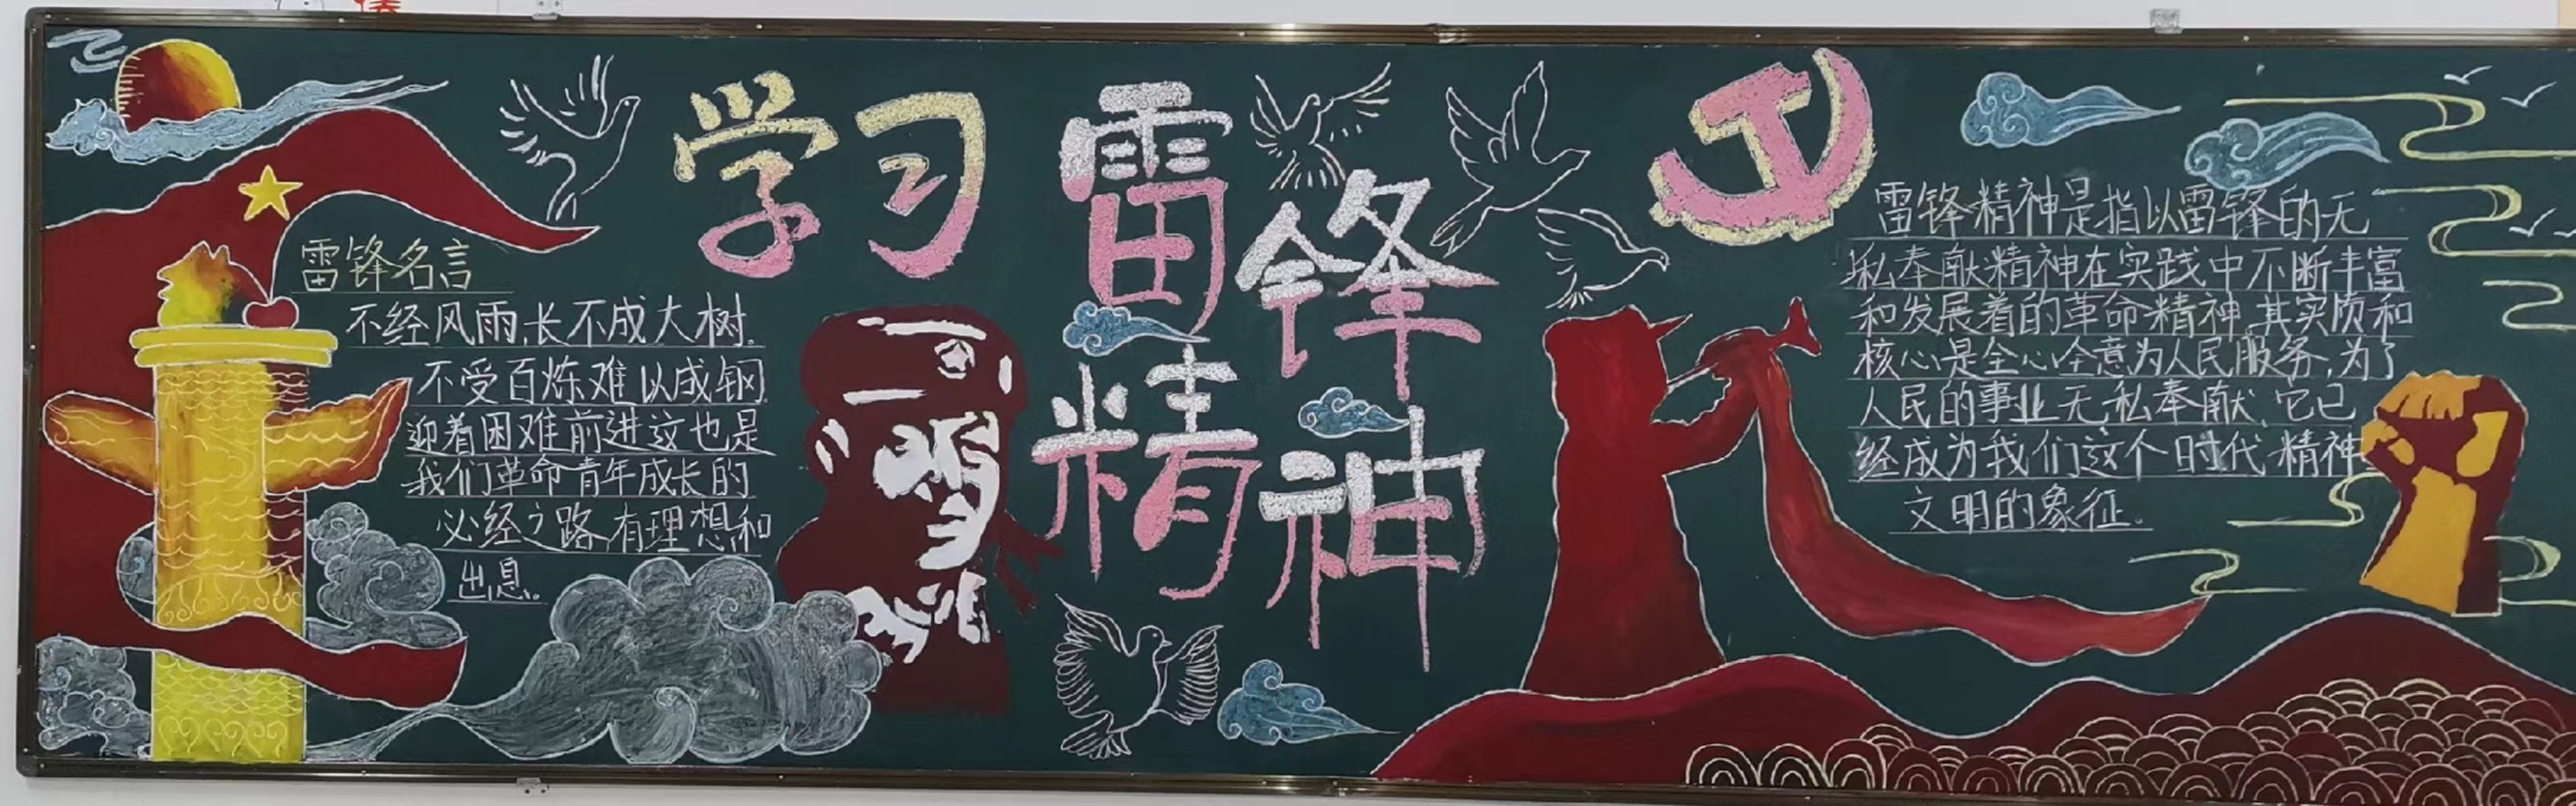 学习
雷锋
精神
雷锋名言
不经风雨,长不成大树。
不受百炼难以成钢。
迎着困难前进这也是
我们革命青年成长的
必经之路,有理想和
出息。
雷锋精神是指以雷锋的无
私奉献精神在实践中不断丰富
和发展着的革命精神,其实质和
核心是全心全意为人民服务,为了
人民的事业无私奉献,它已
经成为我们这个时代精神
文明的象征。